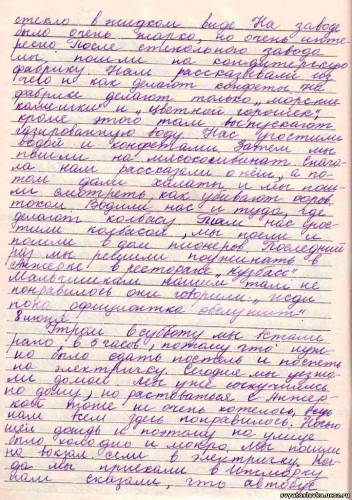 стекло в жидком виде. На заводе
было очень жарко, но очень инте
ресно. После стекольного завода
мы пошли на кондитерскую
фабрику. Нам рассказывали из
чего и как делают конфеты. На
фабрике делают только "морские
камешки" и "цветной горошек",
кроме этого там выпускают
газированную воду. Нас угостили
водой и конфетами. Затем мы
пошли на мясокомбинат. Снача
ла нам рассказали о нём, а по
том дали халаты и мы пош
ли смотреть, как убивают коров
током. Водили нас и туда, где
делают колбасу. Там нас уго
стили колбасой, мы поели и
пошли в дом пионеров. Последний
раз мы решили поужинать в
Анжерке в ресторане "Кузбасс"
Мальчишкам нашим там не
понравилось они говорили: "жди
пока официантка обслужит".
8 июня.
Утром в субботу мы встали
рано, в 5 часов, потому что нуж
но было сдать постели и поспеть
на электричку. Сегодня мы уезжа
ли домой. Мы уже соскучились
по дому, но расставаться с Анжер
кой тоже не очень хотелось, ведь
нам всем здесь понравилось.
шёл дождь и поэтому на улице
было холодно и мокро. Мы пошли
на вокзал сели в электричку. Ког
да мы приехали в
нам сказали, что автобус
svyatoslavka.ucoz.ru